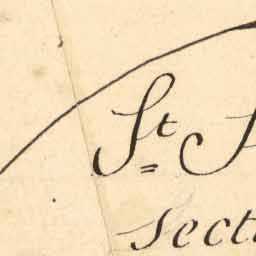 St
sect